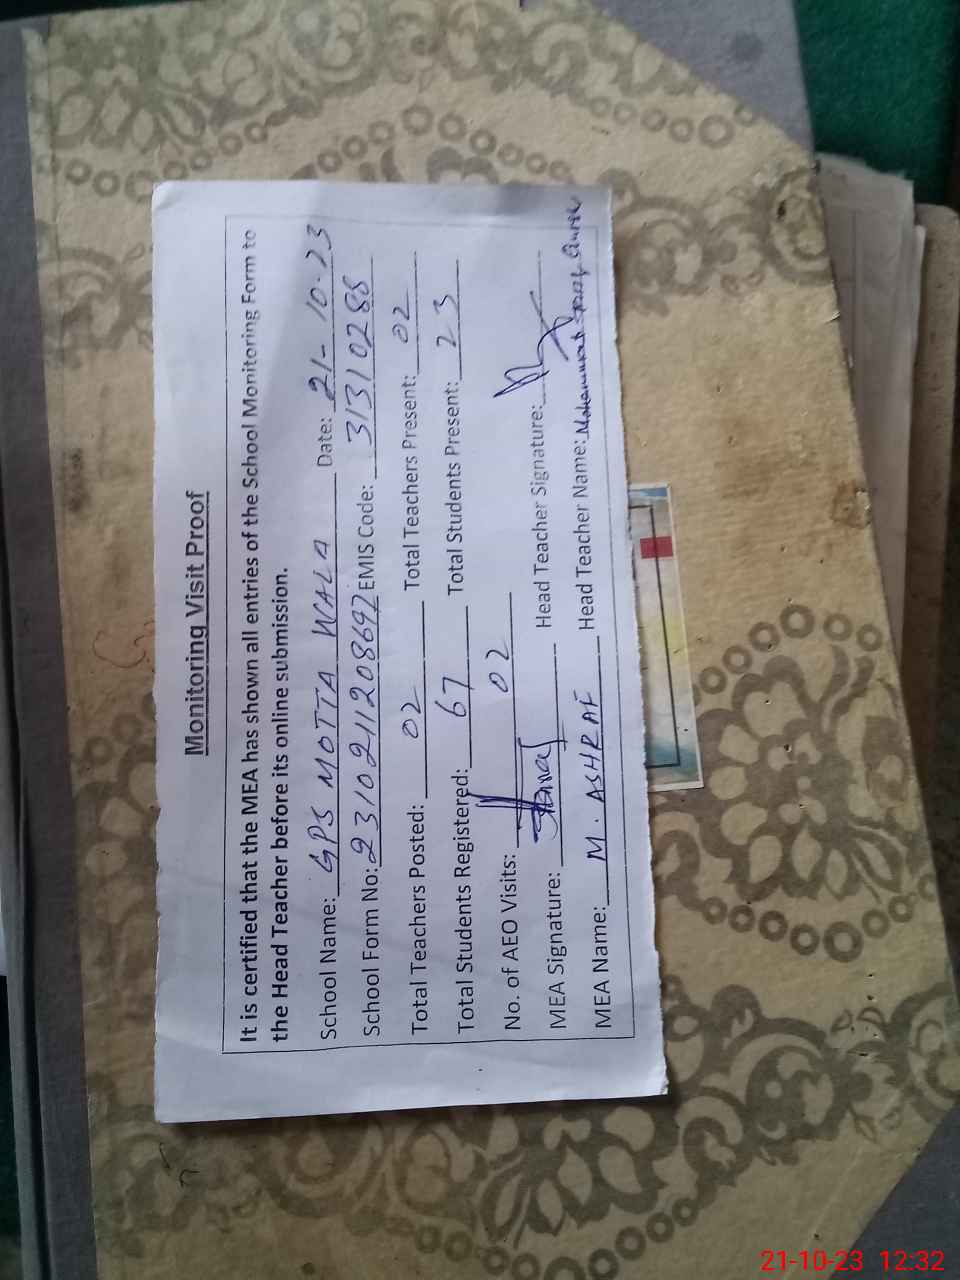 Monitoring Visit Proof
It is certified that the MEA has shown all entries of the School Monitoring Form to
the Head Teacher before its online submission.
School Name: GPS MOTTA WALA Date: 21-10-23
School Form No: 2310211208692 EMIS Code: 31310288
Total Teachers Posted: 02 Total Teachers Present: 02
Total Students Registered: 67 Total Students Present: 23
No. of AEO Visits: 02
MEA Signature: Head Teacher Signature:
MEA Name: M. ASHRAF Head Teacher Name: Mohammad
21-10-23 12:32